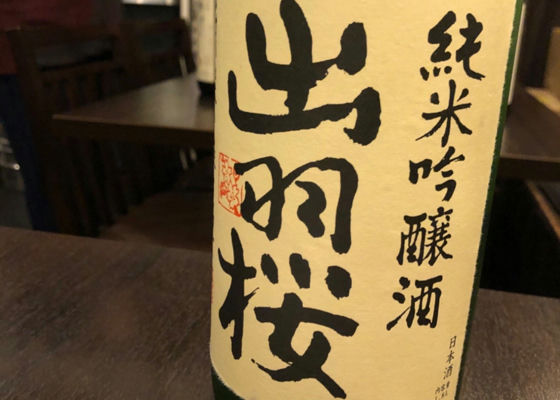 純米吟醸酒
出羽桜
日本酒